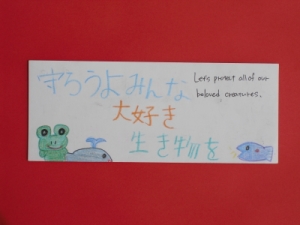 守ろうよみんな
大好き
生き物を
Let's protect all of our
beloved creatures.